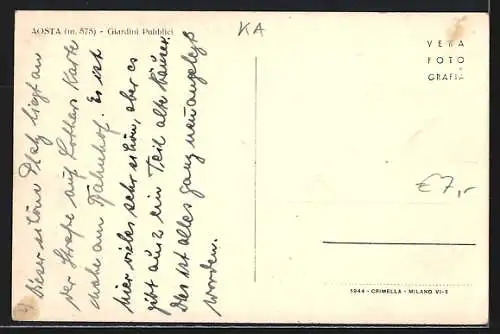 AOSTA (m. 575) - Giardini Pubblici
KA
VERA
FOTO
GRAFIA
€ 7,-
Dieser schöne Platz liegt an
der Straße auf Lothars Karte
nahe am Bahnhof. Es ist
hier vieles sehr schön, aber es
gibt auch ein Teil alte Häuser.
Das ist alles ganz neu angelegt
worden.
5944 - CRIMELLA - MILANO VI-2